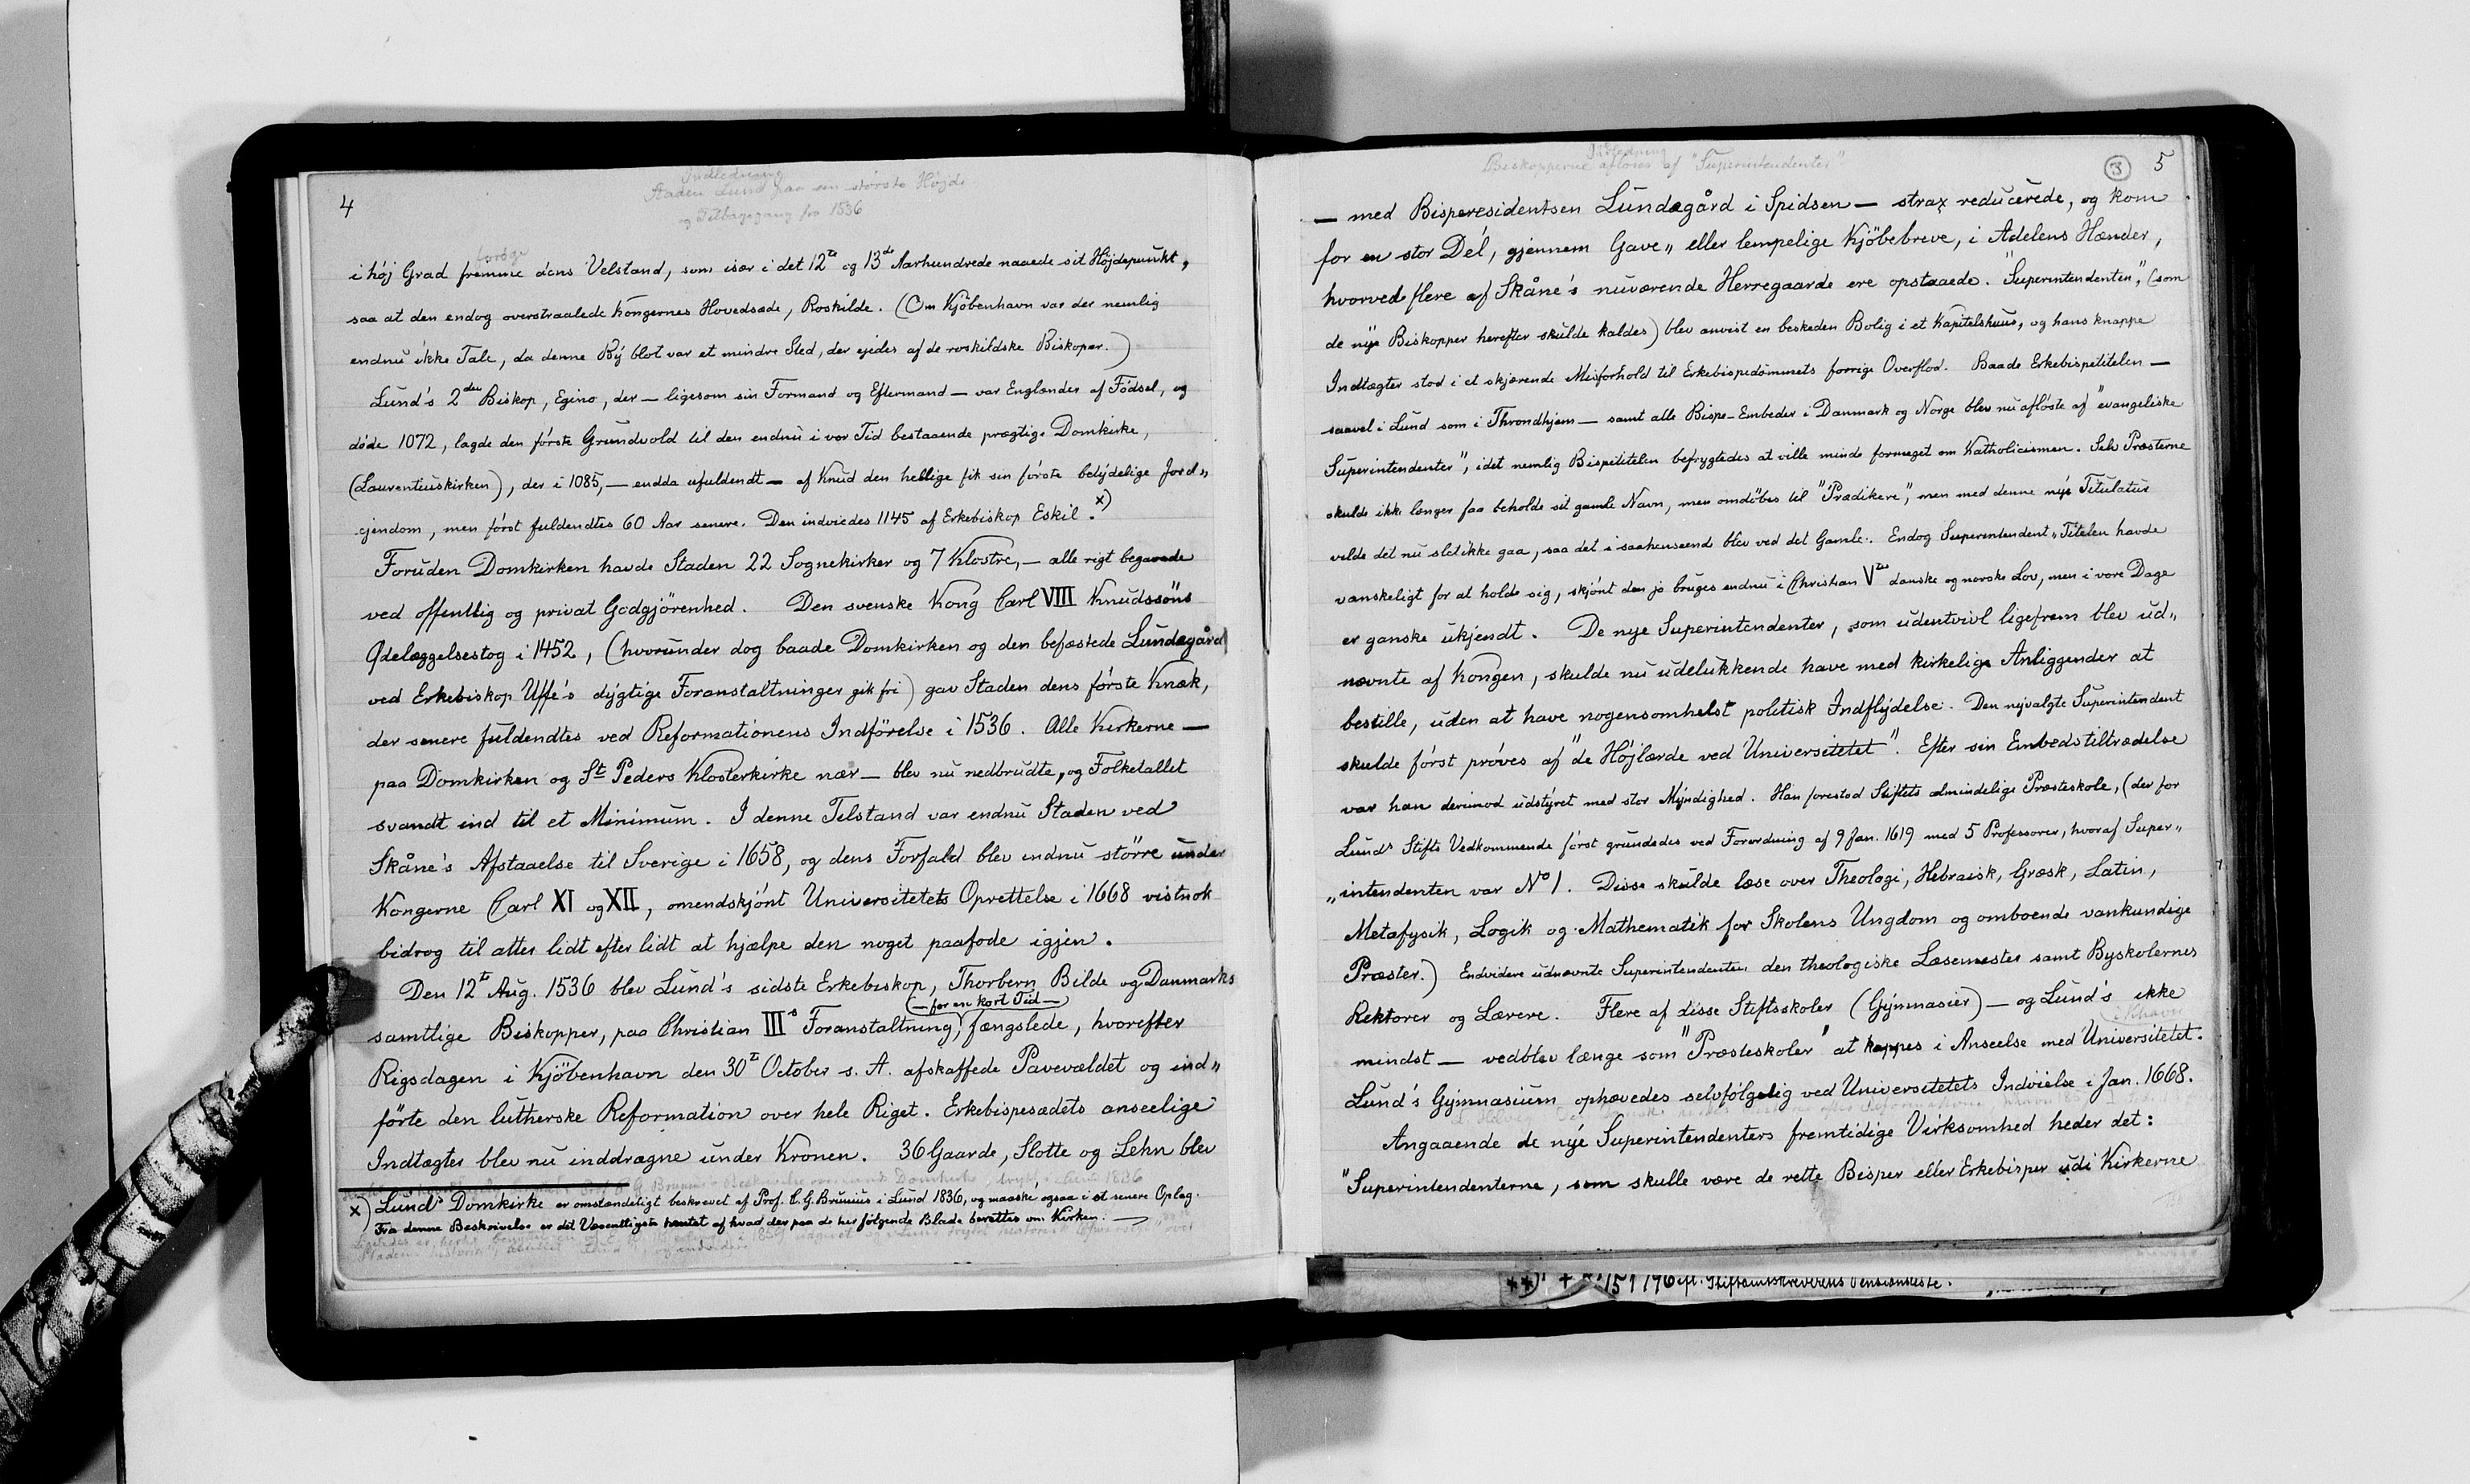 Indledning
Staden Lund paa sin største Højde
og Tilbagegang fra 1536
4
forøge
i høj Grad fremme dens Velstand, som især i det 12te og 13de Aarhundrede naaede sit Højdepunkt,
saa at den endog overstraalede Kongernes Hovedsæde, Roskilde. (Om Kjöbenhavn var der nemlig
endnu ikke Tale, da denne By blot var et mindre Sted, der ejedes af de roskildske Biskoper.)
Lund's 2den Biskop, Egino, der — ligesom sin Formand og Eftermand — var Englænder af Födsel, og
döde 1072, lagde den förste Grundvold til den endnu i vor Tid bestaaende prægtige Domkirke,
(Laurentiuskirken), der i 1085, — endda ufuldendt — af Knud den hellige fik sin förste betydelige Jord„
ejendom, men först fuldendtes 60 Aar senere. Den indviedes 1145 af Erkebiskop Eskil. x)
Foruden Domkirken havde Staden 22 Sognekirker og 7 Klostre, — alle rigt begavede
ved offentlig og privat Godgjörenhed. Den svenske Kong Carl VIII Knudssöns
Ødelæggelsestog i 1452, (hvorunder dog baade Domkirken og den befæstede Lundegård
ved Erkebiskop Uffe's dygtige Foranstaltninger gik fri) gav Staden dens förste Knæk,
der senere fuldendtes ved Reformationens Indförelse i 1536. Alle Kirkerne —
paa Domkirken og St Peders Klosterkirke nær — blev nu nedbrudte, og Folketallet
svandt ind til et Minimum. I denne Tilstand var endnu Staden ved
Skåne's Afstaaelse til Sverige i 1658, og dens Forfald blev endnu större under
Kongerne Carl XI og XII, omendskjönt Universitetets Oprettelse i 1668 vistnok
bidrog til atter lidt efter lidt at hjælpe den noget paafode igjen.
Den 12te Aug. 1536 blev Lund's sidste Erkebiskop, Thorbern Bilde og Danmarks
— for en kort Tid —
samtlige Biskopper, paa Christian III's Foranstaltning, fængslede, hvorefter
Rigsdagen i Kjöbenhavn den 30te October s. A. afskaffede Pavevældet og ind„
förte den lutherske Reformation over hele Riget. Erkebispesædets anseelige
Indtægter blev nu inddragne under Kronen. 36 Gaarde, Slotte og Lehn blev
x) Lunds Domkirke er omstændeligt beskrevet af Prof. C. G. Brunius i Lund 1836, og maaske ogsaa i et senere Oplag.
Fra denne Beskrivelse er det Væsentligste hentet af hvad der paa de her følgende Blade berettes om Kirken. —
Indledning
Biskopperne afløses af "Superintendenter"
3 5
— med Bisperesidentsen Lundegård i Spidsen — strax reducerede, og kom
for en stor Dél, gjennem Gave„ eller lempelige Kjöbebreve, i Adelens Hænder,
hvorved flere af Skåne's nuværende Herregaarde ere opstaaede. "Superintendenten", (som
de nye Biskopper herefter skulde kaldes) blev anvist en beskeden Bolig i et Kapitelshuus, og hans knappe
Indtægter stod i et skjærende Misforhold til Erkebispedömmets forrige Overflod. Baade Erkebispetitelen —
saavel i Lund som i Throndhjem — samt alle Bispe-Embeder i Danmark og Norge blev nu aflöste af "evangeliske
Superintendenter", idet nemlig Bispetitelen befrygtedes at ville minde formeget om Katholicismen. Selv Præsterne
skulde ikke længer faa beholde sit gamle Navn, men omdöbes til "Prædikere", men med denne nye Titulatur
vilde det nu slet ikke gaa, saa det i saahenseende blev ved det Gamle. Endog Superintendent„Titelen havde
vanskeligt for at holde sig, skjönt den jo bruges endnu i Christian Vtes danske og norske Lov, men i vore Dage
er ganske ukjendt. De nye Superintendenter, som udentvivl ligefrem blev ud„
nævnte af Kongen, skulde nu udelukkende have med kirkelige Anliggender at
bestille, uden at have nogensomhelst politisk Indflydelse. Den nyvalgte Superintendent
skulde först pröves af "de Höjlærde ved Universitetet". Efter sin Embedstiltrædelse
var han derimod udstyret med stor Myndighed. Han forestod Stiftets almindelige Præsteskole, (der for
Lunds Stifts Vedkommende först grundedes ved Forordning af 9 Jan. 1619 med 5 Professorer, hvoraf Super„
„intendenten var No 1. Disse skulde læse over Theologi, Hebraisk, Græsk, Latin,
Metafysik, Logik og Mathematik for Skolens Ungdom og omboende vankundige
Præster.) Endvidere udnævnte Superintendenten den theologiske Læsemester samt Byskolernes
Rektorer og Lærere. Flere af disse Stiftsskoler (Gymnasier) — og Lund's ikke
i Khavn
mindst — vedblev længe som "Præsteskoler" at kappes i Anseelse med Universitetet.
Lund's Gymnasium ophævedes selvfölgelig ved Universitetets Indvielse i Jan. 1668.
Angaaende de nye Superintendenters fremtidige Virksomhed heder det:
"Superintendenterne, som skulle være de rette Bisper eller Erkebisper udi Kirkerne
Stiftamtskriverens Pensionsliste.